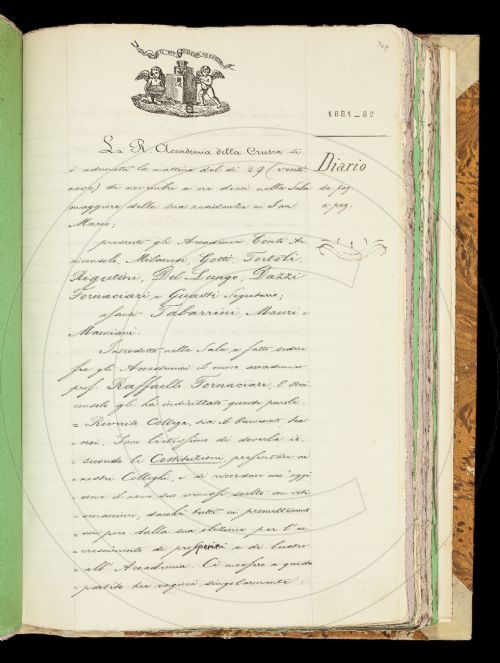 709
1881-82
Diario
da pag.
a pag.
La R. Accademia della Crusca si
è adunata la mattina del dì 29 (venti
nove) di novembre a ore dieci nella Sala
maggiore della sua residenza in San
Marco;
presenti gli Accademici Conti Ar
ciconsolo, Milanesi, Gotti, Tortoli
Rigutini, Del Lungo, Dazzi
Fornaciari, e Guasti Segretario;
assenti Tabarrini, Mauri e
Mamiani.
Introdotto nella Sala, e fatto sedere
fra gli Accademici il nuovo accademico
prof. Raffaello Fornaciari, l'Arci
consolo gli ha indirizzato queste parole.
= Riverito Collega, sia il benvenuto tra
noi. Sono lietissimo di doverla, se-
condo le Costituzioni, presentare ai
nostri Colleghi, e di ricordare com'oggi
come il nome suo vinse scelto con voti
, dacchè tutti ci promettiamo
non poco dalla sua elezione per l'ac-
crescimento di prosperità e di lustro
all'Accademia. Ci mosse a questo
partito tre ragioni singolarmente: